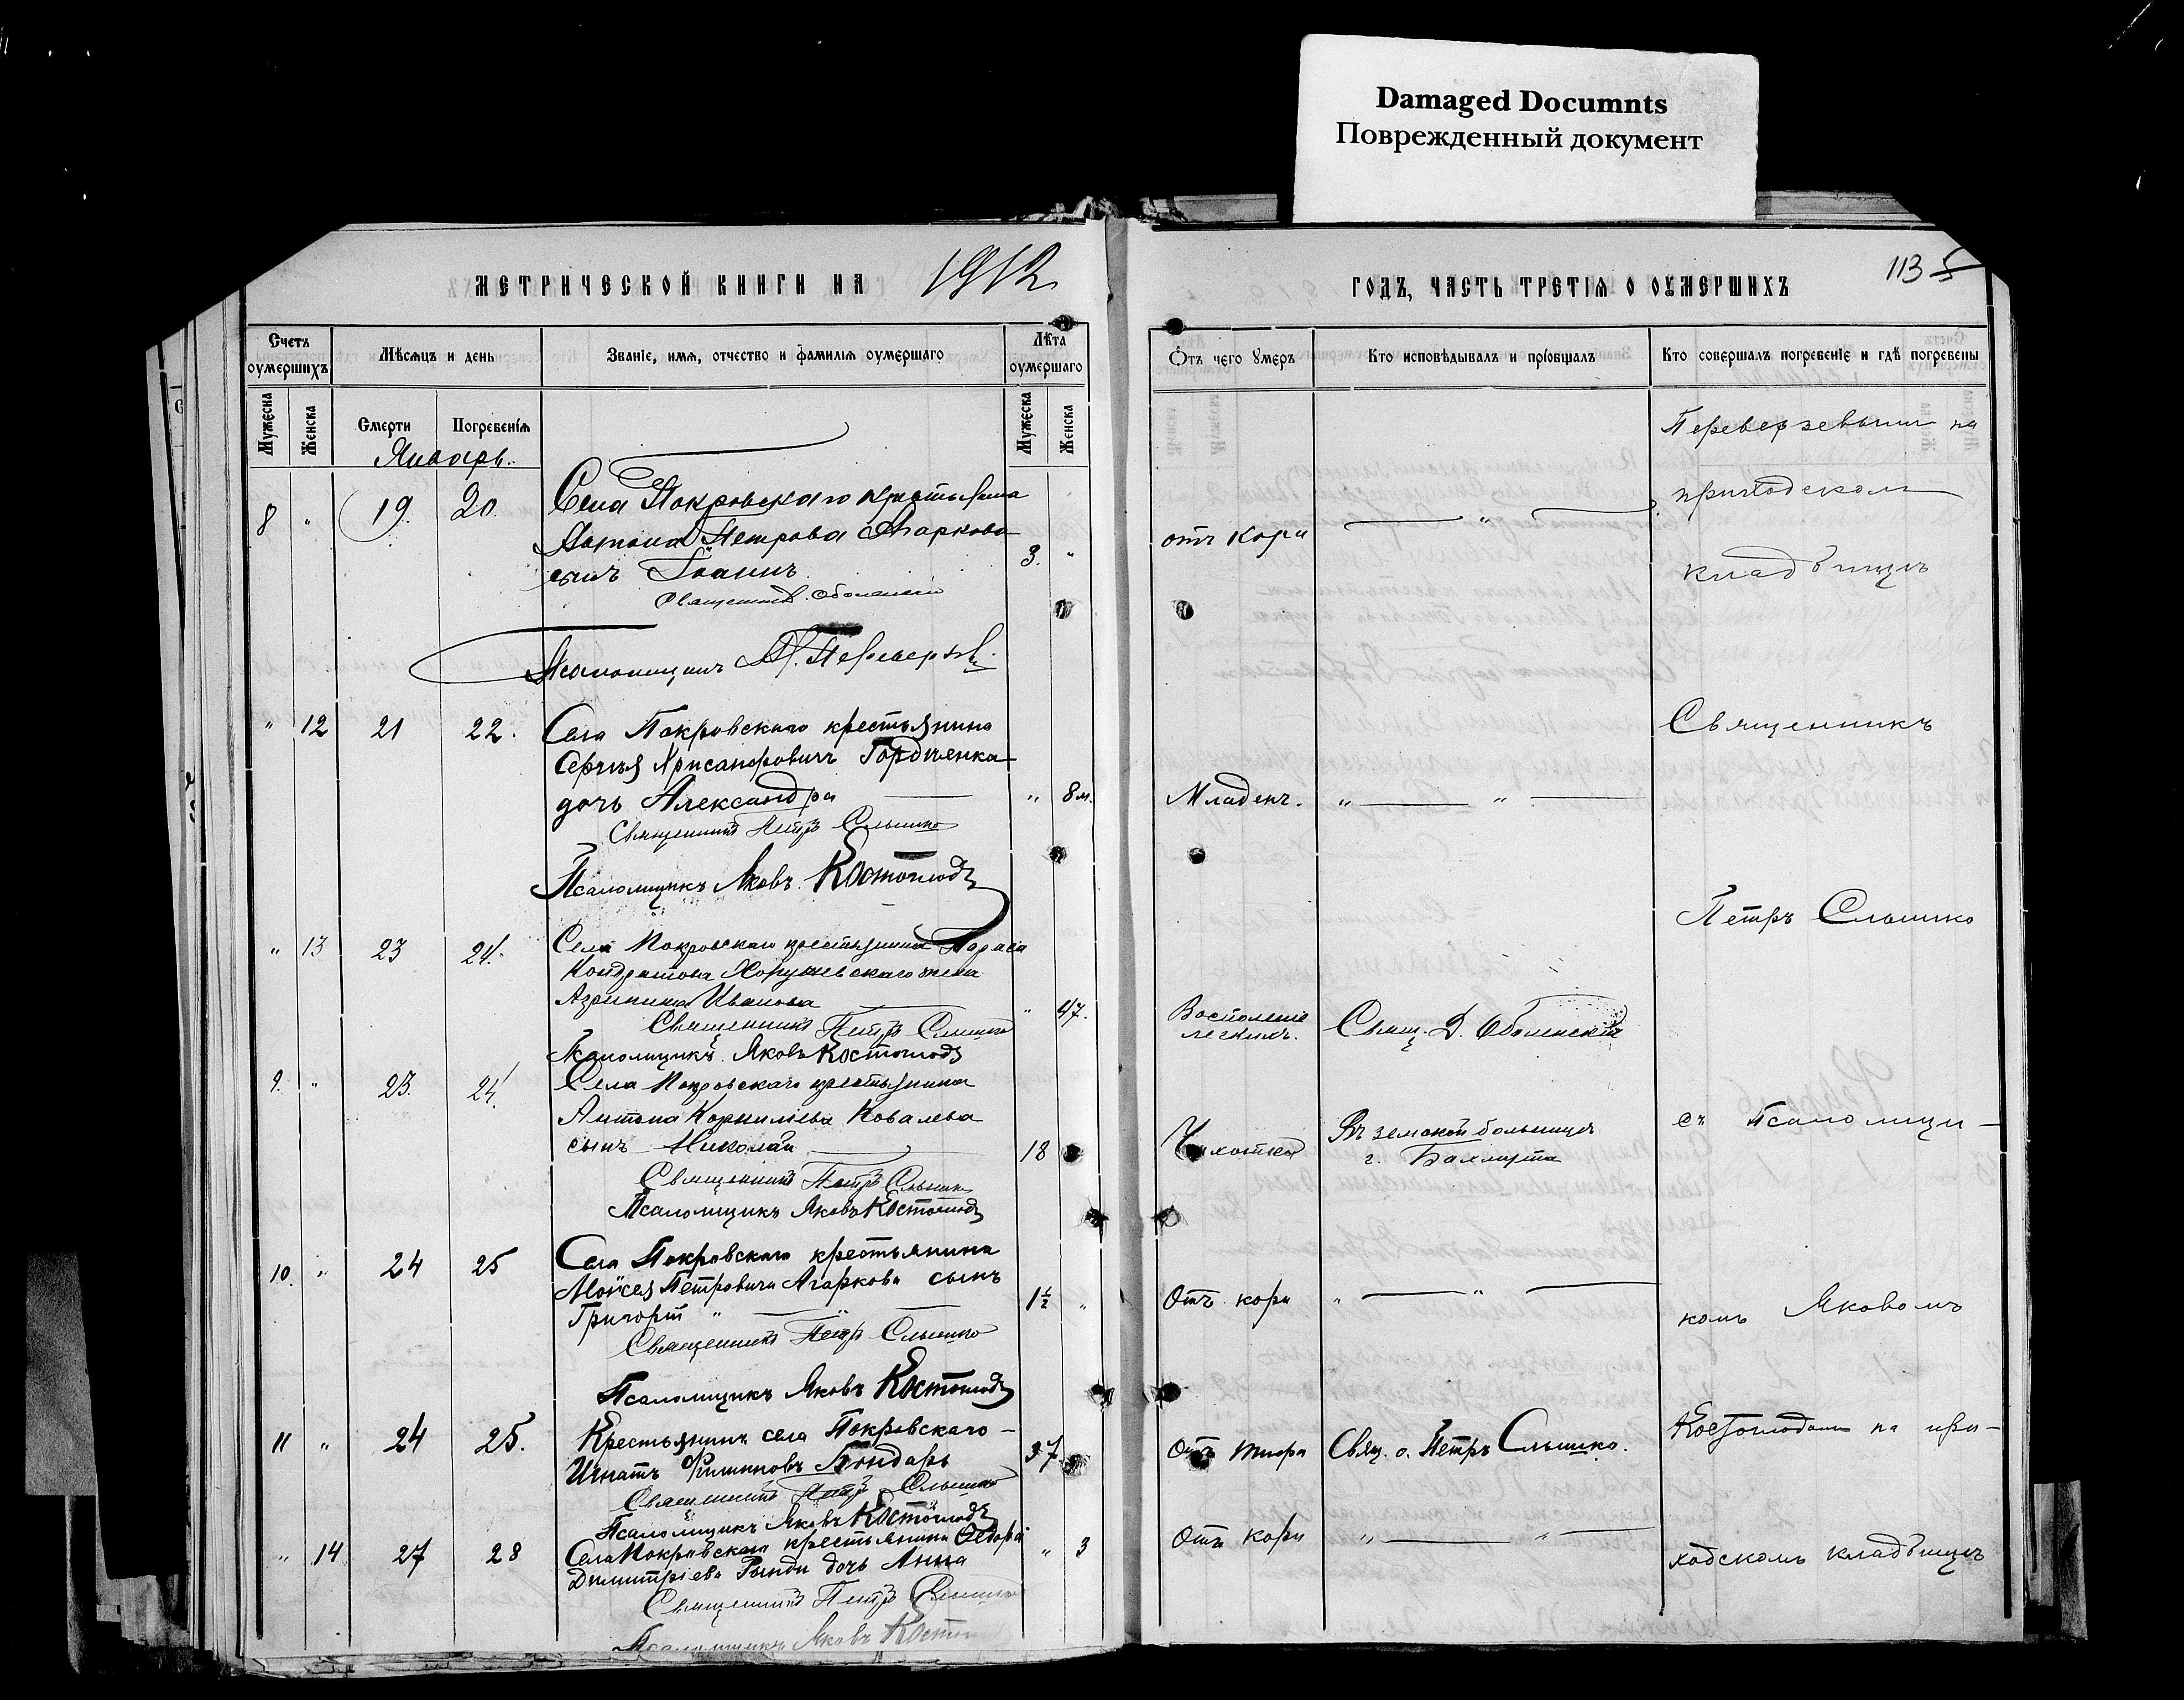 Damaged Documnts
Поврежденный документ
МЕТРИЧЕСКОЙ КНИГИ НА 1912
ГОДЪ, ЧАСТЬ ТРЕТІЯ О ОУМЕРШИХЪ
113
Счетъ оумершихъ
Мѣсяцъ и день
Званіе, имя, отчество и фамилія оумершаго
Лѣта оумершаго
Отъ чего умеръ
Кто исповѣдывалъ и пріобщалъ
Кто совершалъ погребеніе и гдѣ погребены
Мужеска
Женска
Смерти
Погребенія
Мужеска
Женска
Январь.
Переверзевымъ на
8 " 19. 20.
Села Покровскаго крестьянина
приходскомъ
Антона Петрова Агаркова
3. "
отъ кори
"
сынъ Іоаннъ
кладбищѣ
Священникъ Оболенскій
Псаломщикъ Переверзевъ
" 12 21 22.
Села Покровскаго крестьянина
Священникъ
Сергѣя Хрисанфовичъ Гордіенка
дочь Александра
" 8 м.
Младенч.
" "
Священникъ Петръ Слышко
Псаломщикъ Яковъ Костоглодъ
Петръ Слышко
" 13 23 24.
Села Покровскаго крестьянина Тараса
Кондратова Хоружевскаго жена
Агрипина Иванова
" 47.
Воспаленіе
легкихъ.
Свящ. Д. Оболенскій
Священникъ Петръ Слышко
Псаломщикъ Яковъ Костоглодъ
9. " 23. 24.
Села Покровскаго крестьянина
Антона Корнилієва Ковалева
съ Псаломщи-
сынъ Николай
18
Чахотка
Въ земской больницѣ
г. Бахмута
Священникъ Петръ Слышко
Псаломщикъ Яковъ Костоглодъ
10. " 24 25
Села Покровскаго крестьянина
Моѵсея Петровича Агаркова сынъ
1½ "
Отъ кори
" "
комъ Яковомъ
Григорій " "
Священникъ Петръ Слышко
Псаломщикъ Яковъ Костоглодъ
11 " 24 25.
Крестьянинъ села Покровскаго -
Игнатъ Филиповъ Бондарь
37
Отъ тифа
Свящ. о. Петръ Слышко.
Костоглодомъ на при-
Священникъ Петръ Слышко
Псаломщикъ Яковъ Костоглодъ
" 14 27 28
Села Покровскаго крестьянина Ѳедора
Димитріева Рынди дочь Анна
" 3
Отъ кори
" "
ходскомъ кладбищѣ
Священникъ Петръ Слышко
Псаломщикъ Яковъ